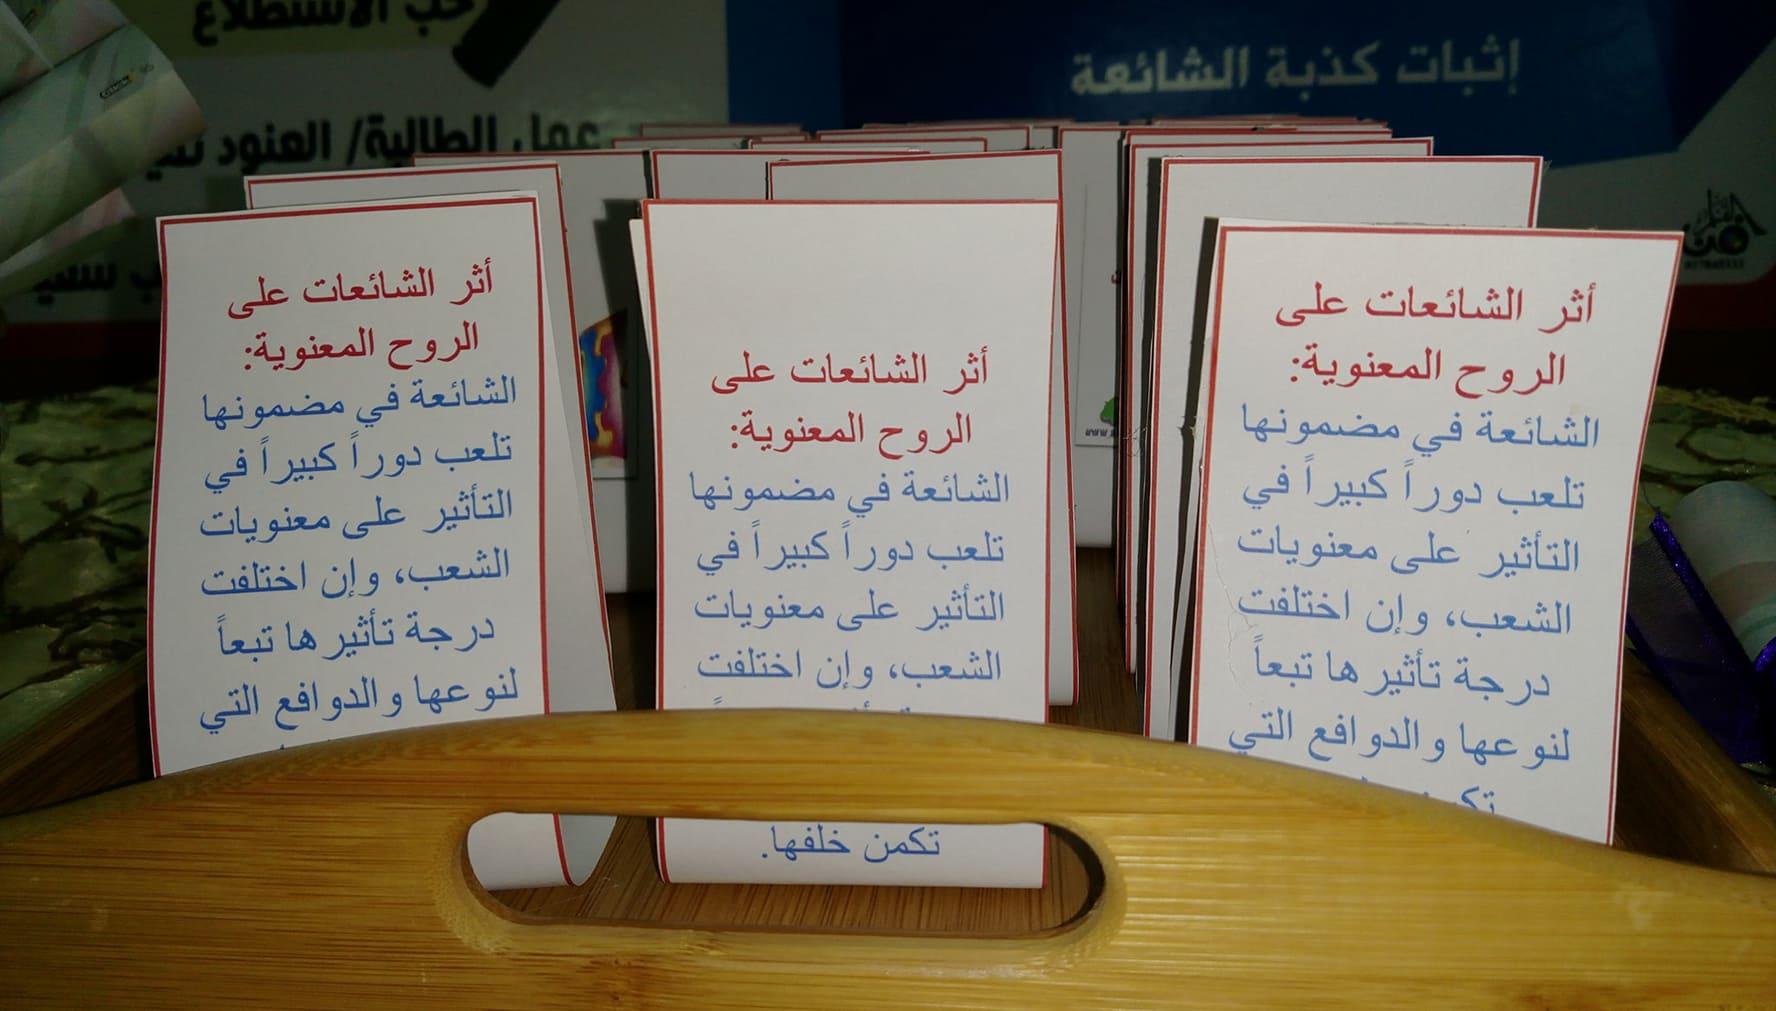 حب الاستطلاع
إثبات كذبة الشائعة
عمل الطالبة/ العنود
أثر الشائعات على
الروح المعنوية:
الشائعة في مضمونها
تلعب دوراً كبيراً في
التأثير على معنويات
الشعب، وإن اختلفت
درجة تأثيرها تبعاً
لنوعها والدوافع التي
أثر الشائعات على
الروح المعنوية:
الشائعة في مضمونها
تلعب دوراً كبيراً في
التأثير على معنويات
الشعب، وإن اختلفت
تكمن خلفها.
أثر الشائعات على
الروح المعنوية:
الشائعة في مضمونها
تلعب دوراً كبيراً في
التأثير على معنويات
الشعب، وإن اختلفت
درجة تأثيرها تبعاً
لنوعها والدوافع التي